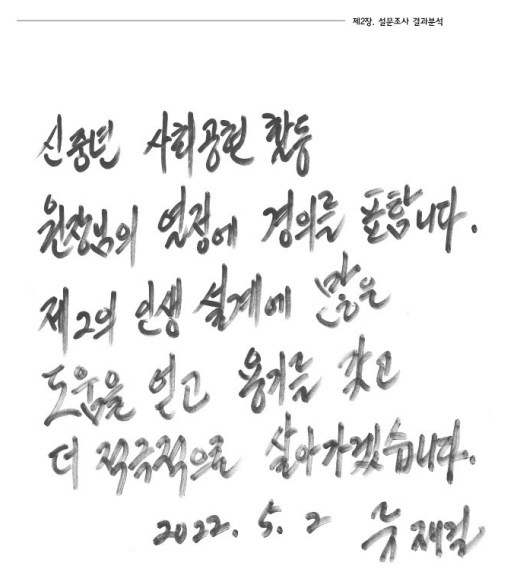 제2장. 설문조사 결과분석
신중년 사회공헌 활동
원장님의 열정에 경의를 표합니다.
제2의 인생 설계에 많은
도움을 얻고 용기를 갖고
더 적극적으로 살아가겠습니다.
2022. 5. 2 유재길